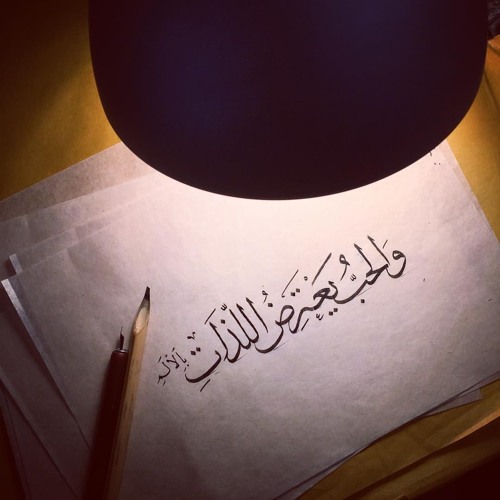 وَالحُبُّ يَعْتَرِضُ اللَّذَّاتِ بِالأَلَمِ